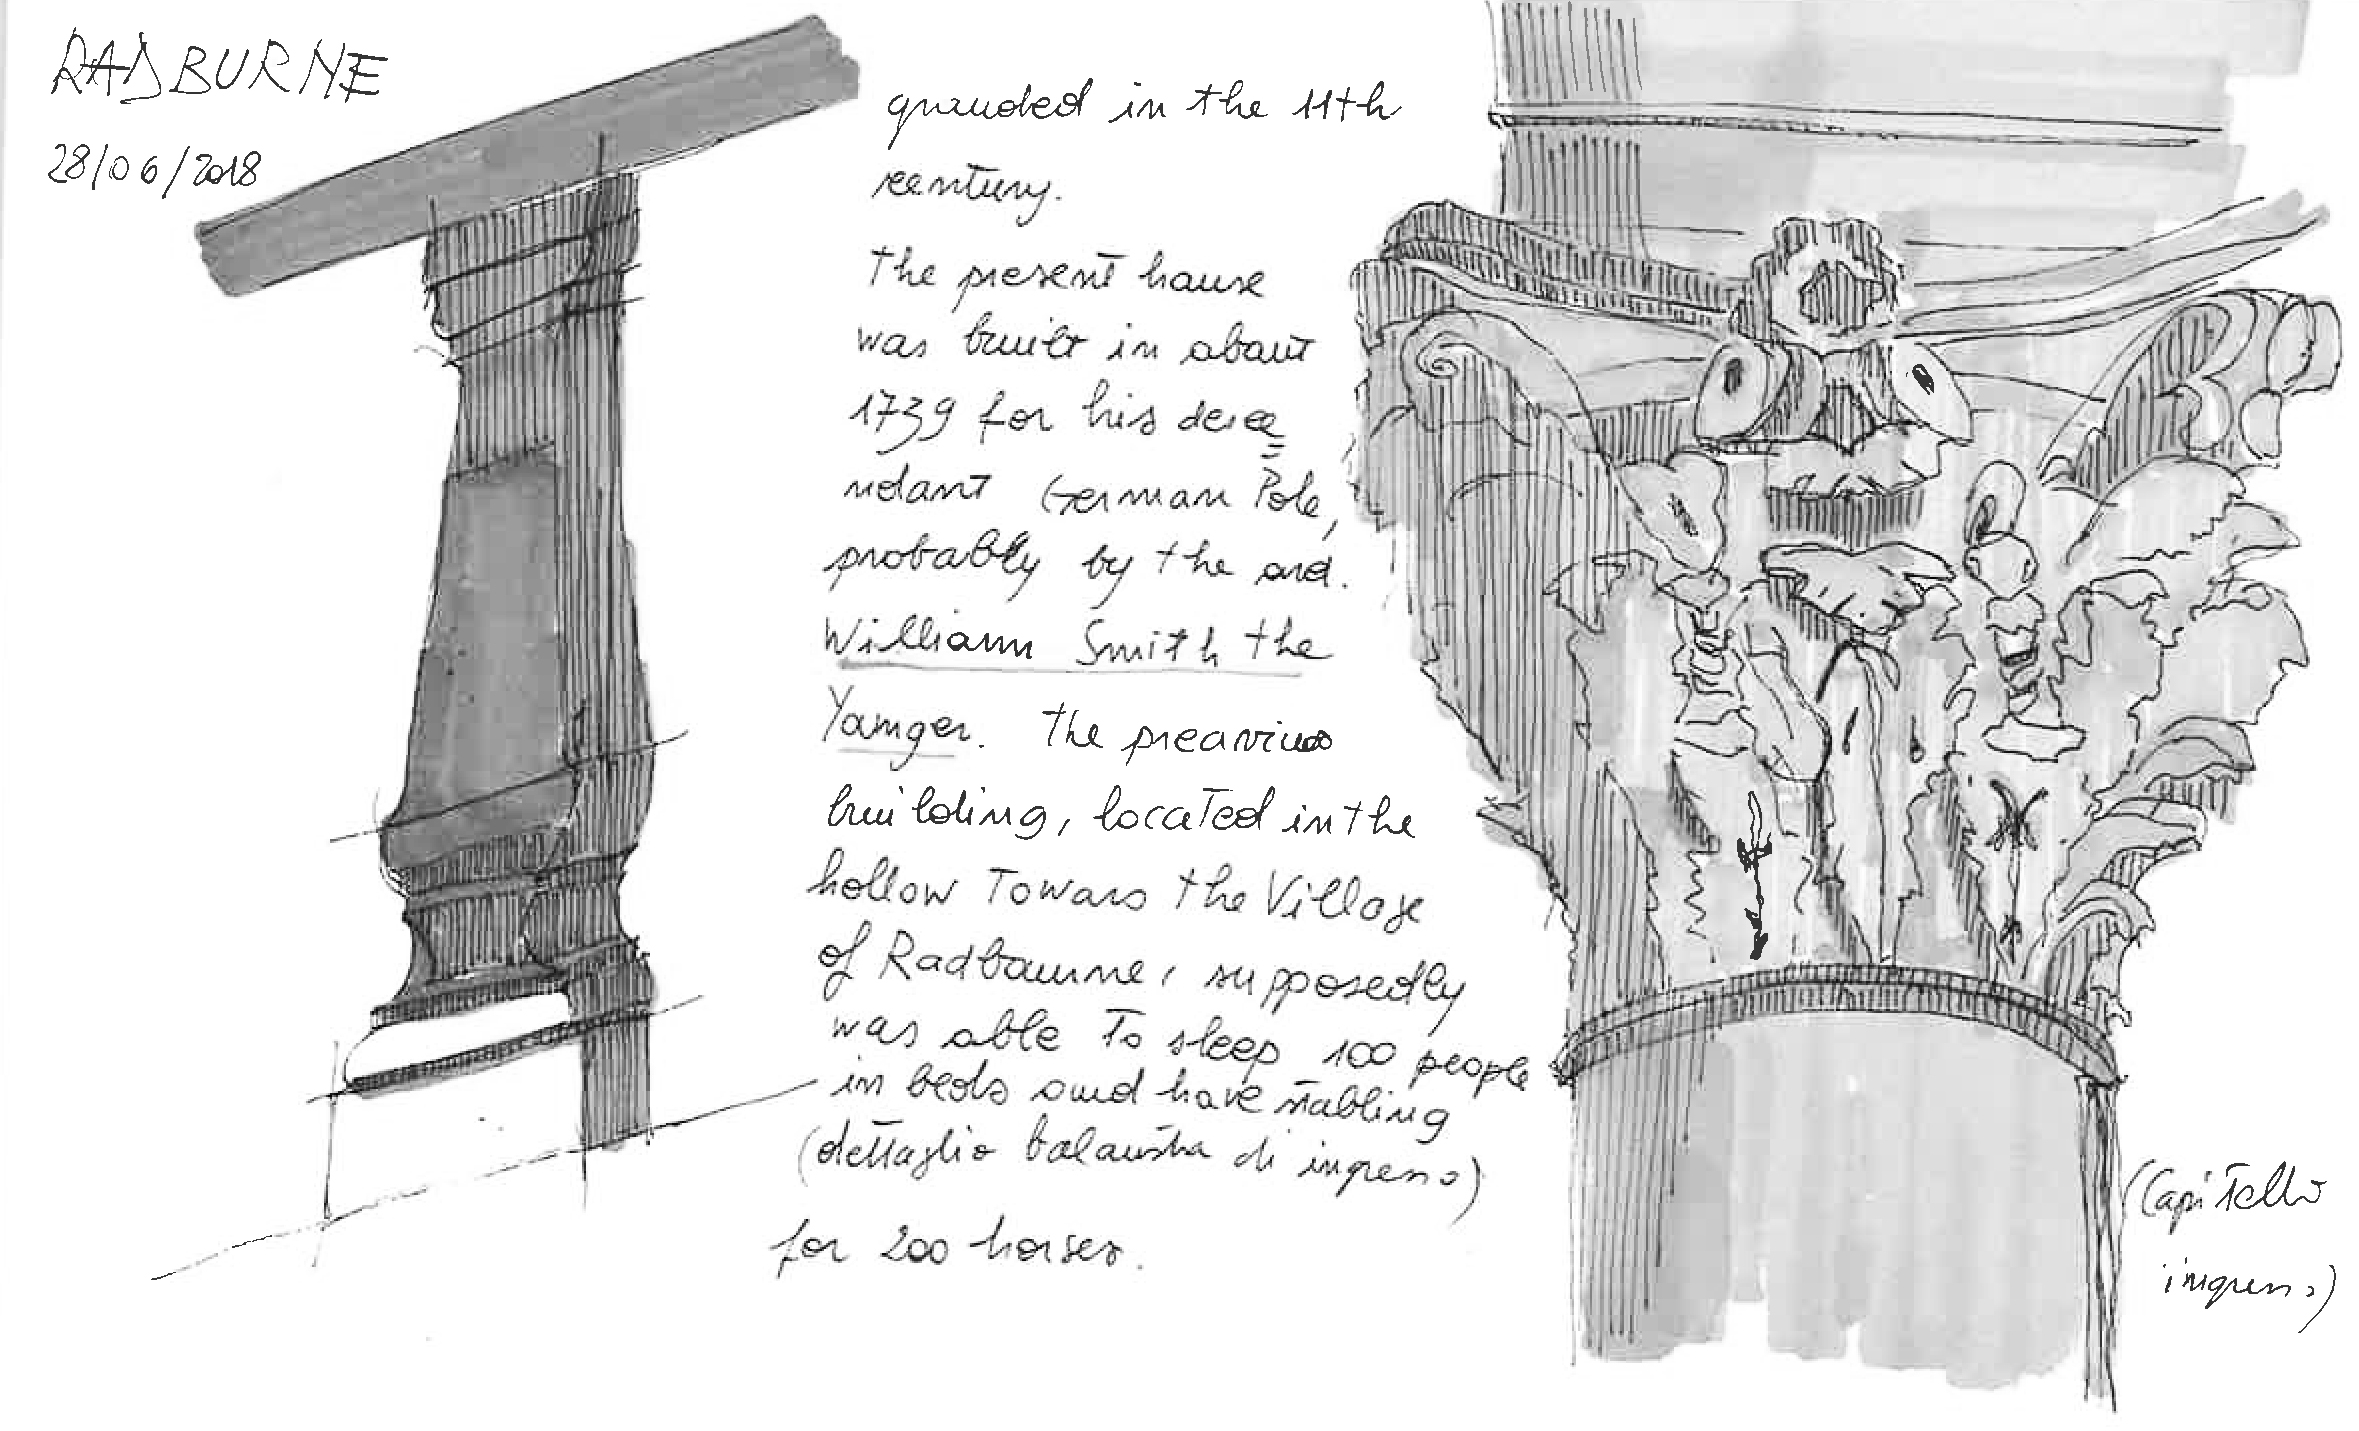 RADBURNE
28/06/2018
grauded in the 11th
century.
the present house
was built in about
1739 for his desce
ndant German Pole,
probably by the
William Smith the
Younger. the
building, located in the
hollow Towars the Village
of Radbourne, supposedly
was able To sleep 100 people
in beds and have stabling
(dettaglio balaustra di ingresso)
for 200 horses.
(Capitello
ingresso)